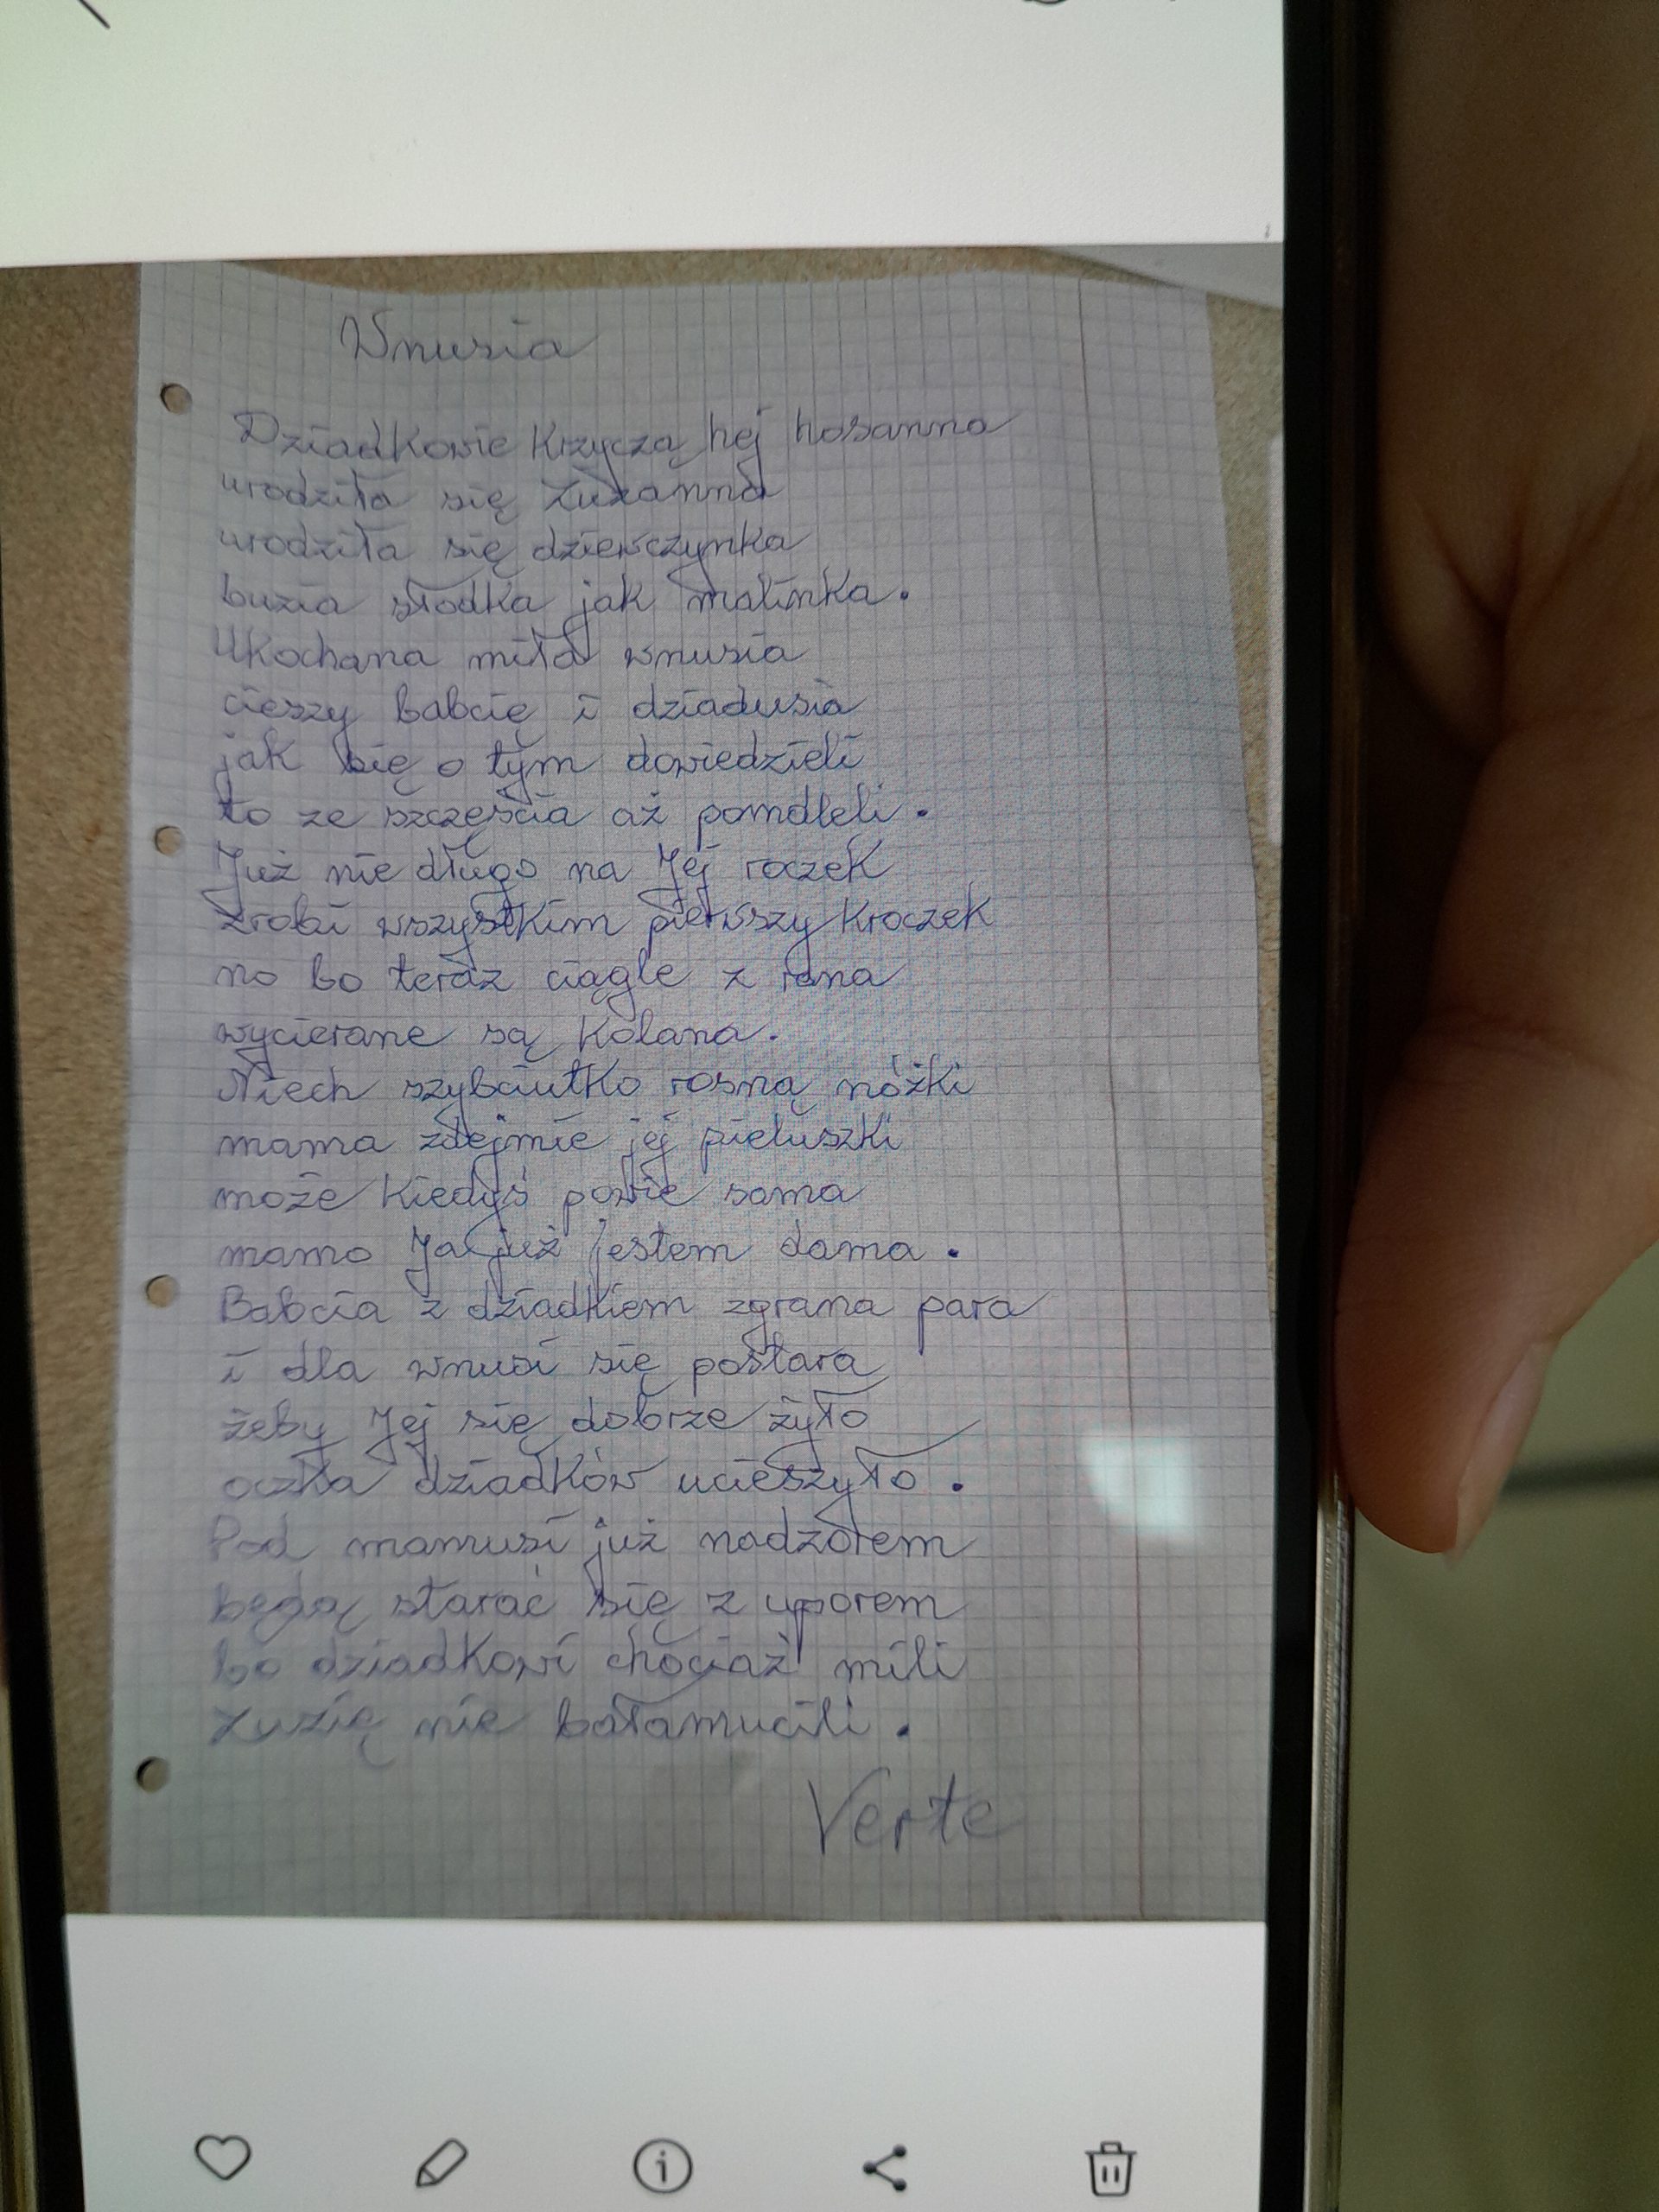 Wnusia
Dziadkowie krzyczą hej hosanna
urodziła się Zuzanna
urodziła się dziewczynka
buzia słodka jak malinka.
Ukochana miła wnusia
cieszy babcię i dziadusia
jak się o tym dowiedzieli
to ze szczęścia aż pomdleli.
Już nie długo na Jej roczek
zrobi wszystkim pierwszy kroczek
no bo teraz ciągle z rana
wycierane są kolana.
Niech szybciutko rosną nóżki
mama zdejmie jej pieluszki
może kiedyś powie sama
mamo Ja już jestem dama.
Babcia z dziadkiem zgrana para
i dla wnusi się postara
żeby Jej się dobrze żyło
oczka dziadków ucieszyło.
Pod mamusi już nadzorem
będą starać się z uporem
bo dziadkowi chociaż mili
Zuzię nie bałamucili.
Verte